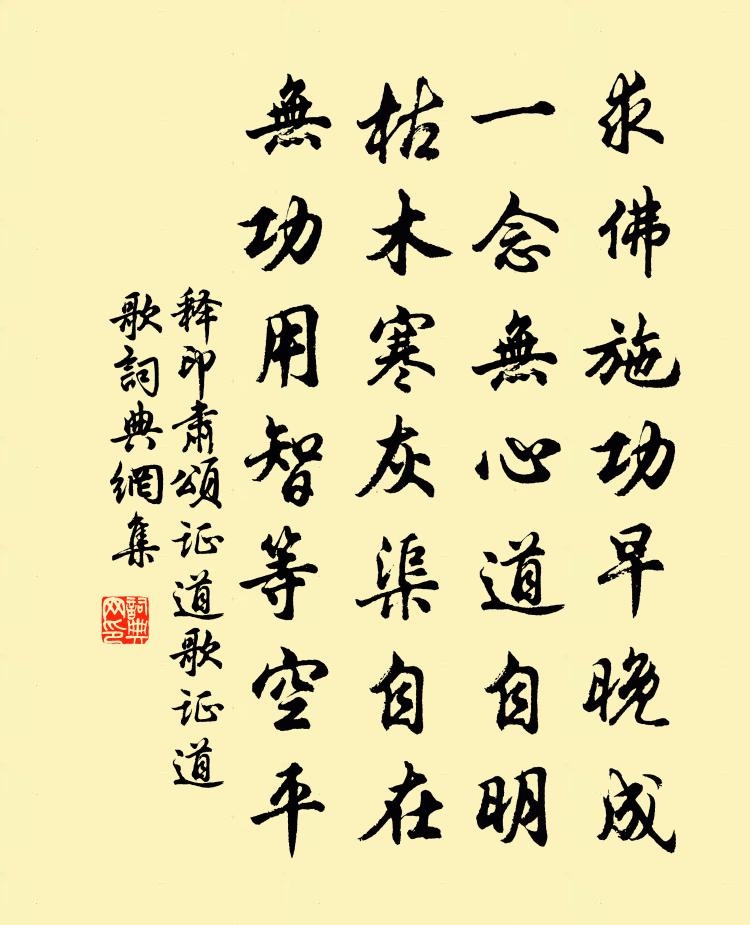 求佛施功早晚成
一念無心道自明
枯木寒灰渠自在
無功用智等空平
释印肅頌证道歌证道
歌詞典網集
詞典
网印